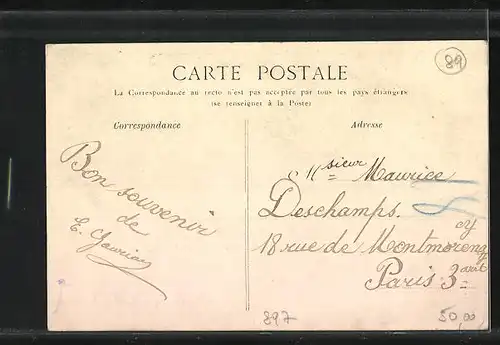 89
CARTE POSTALE
La Correspondance au recto n'est pas acceptée par tous les pays étrangers
(se renseigner à la Poste)
Correspondance
Adresse
Bon souvenir
de
E.
Msieur Maurice
Deschamps.
18 rue de Montmorency
Paris 3
897
50,00